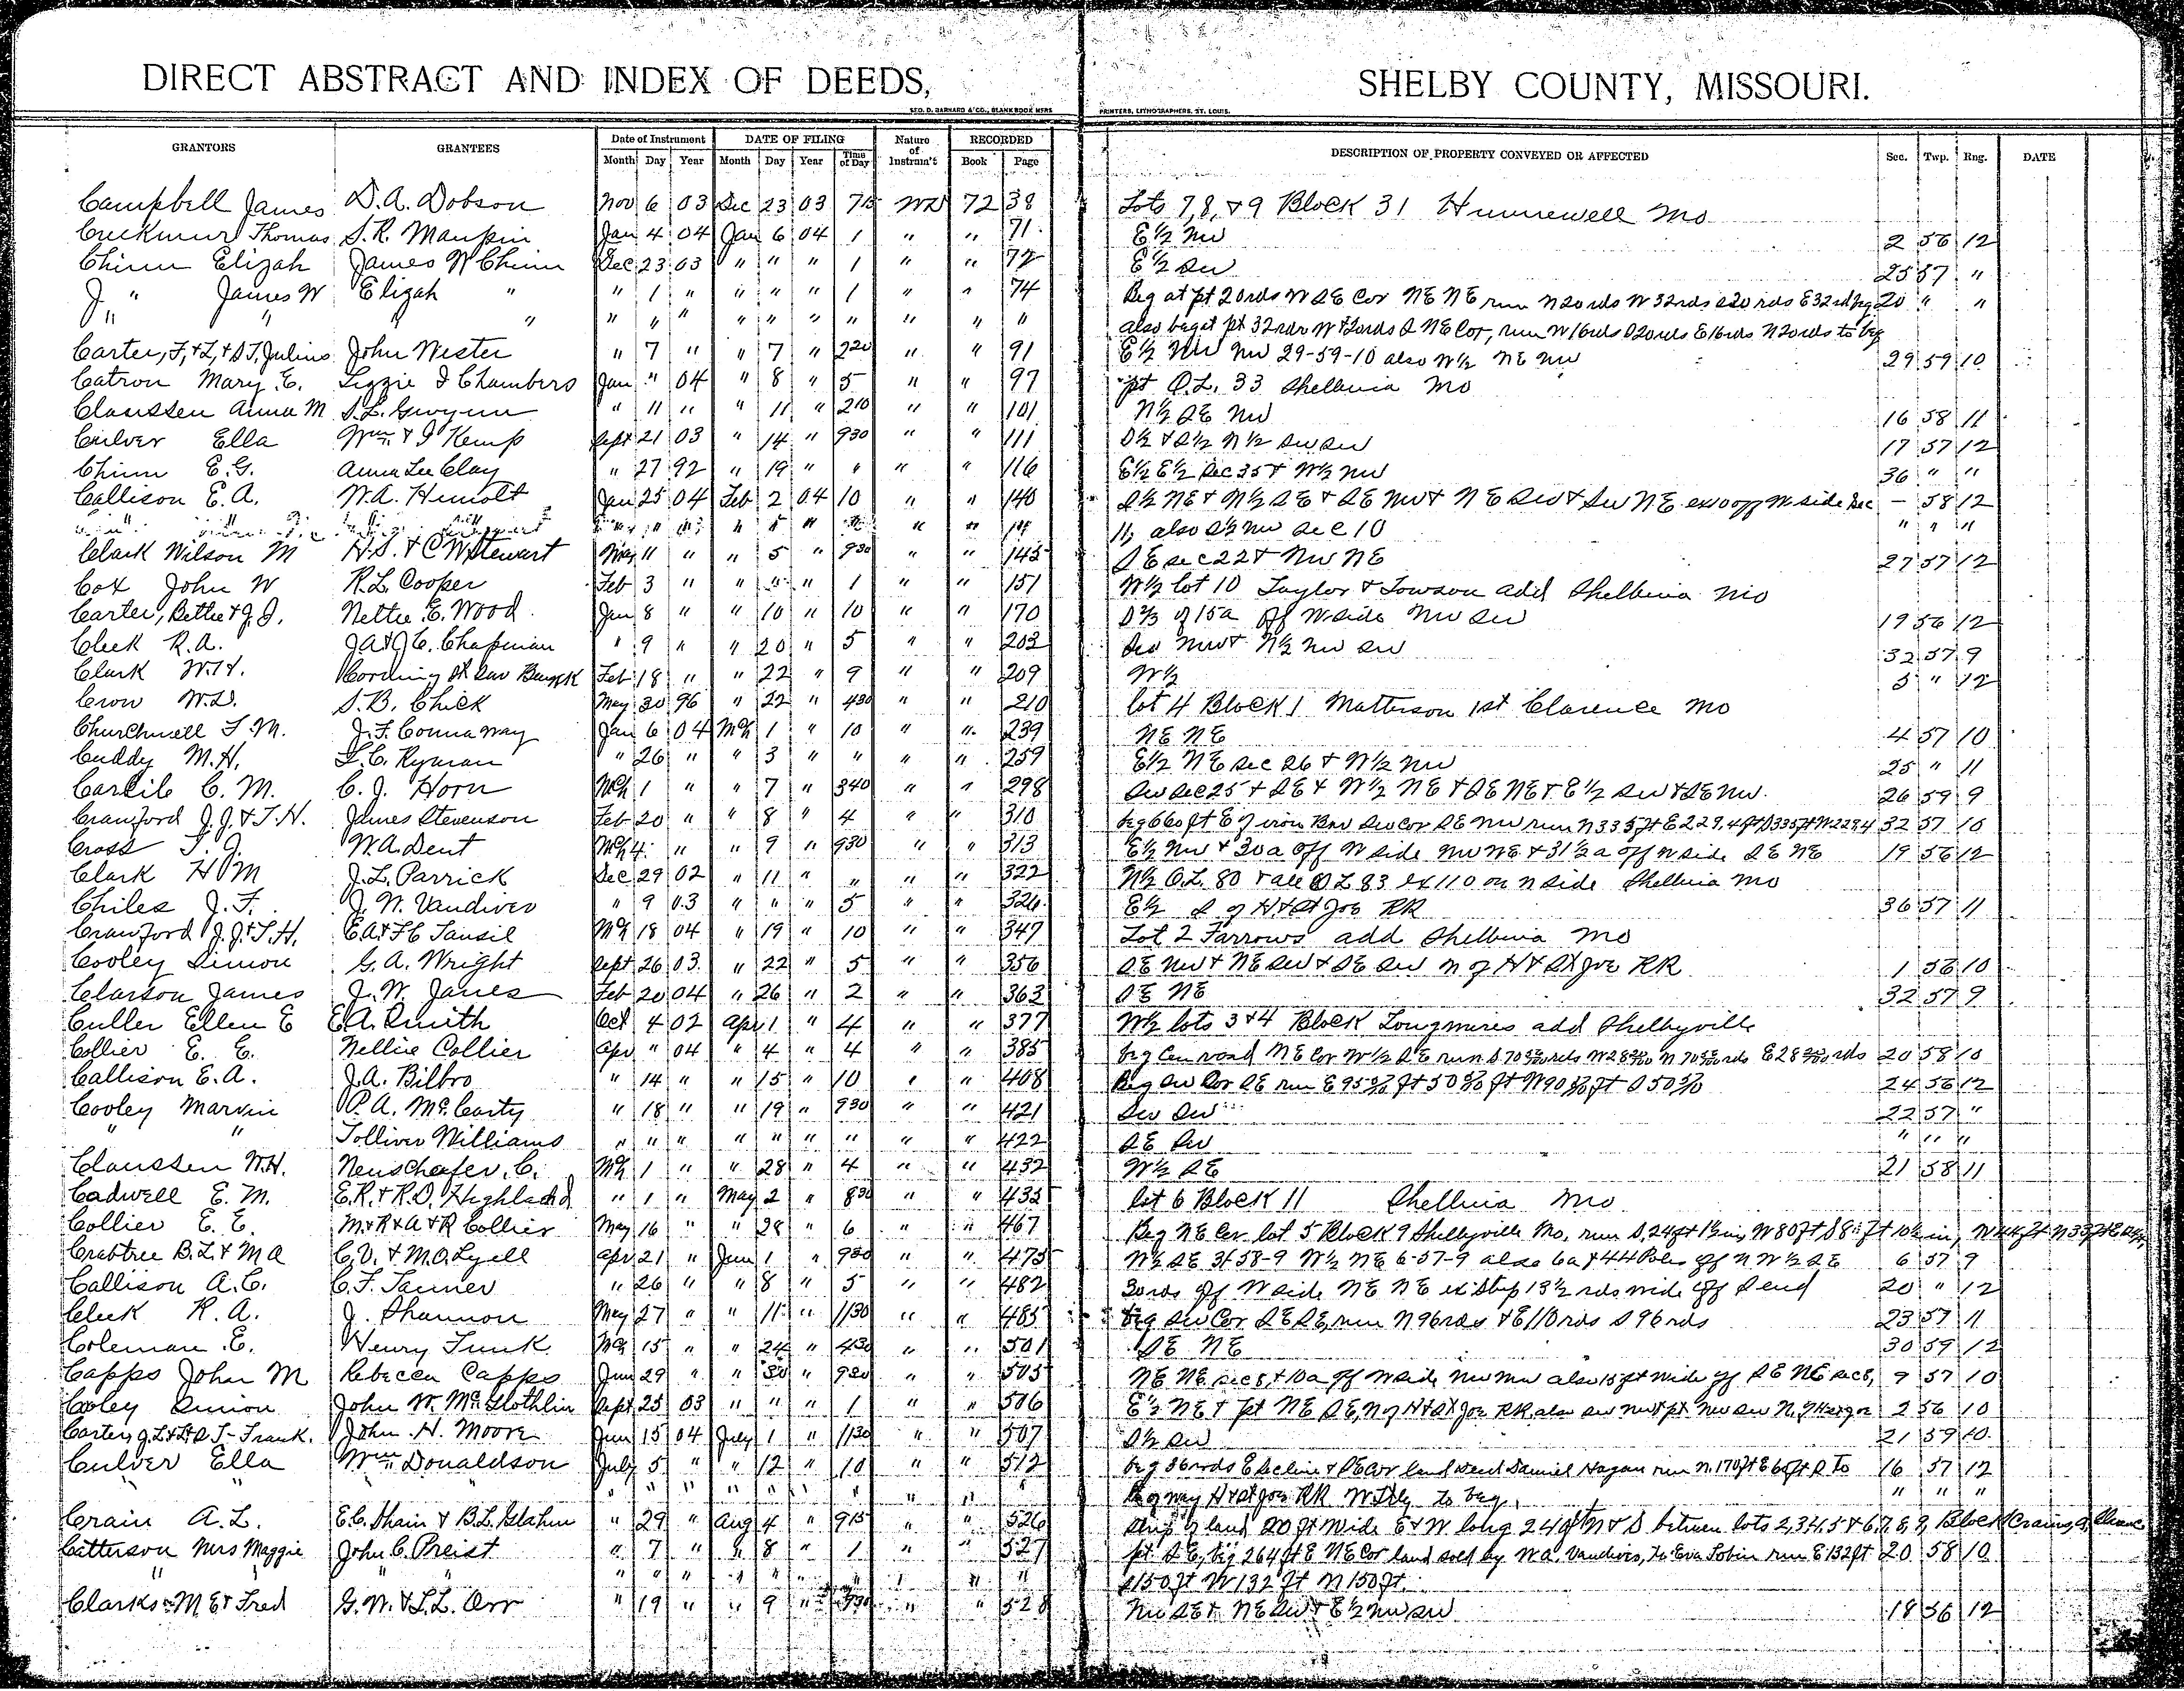 DIRECT ABSTRACT AND INDEX OF DEEDS, SHELBY COUNTY, MISSOURI.
GEO. D. BARNARD & CO., BLANK BOOK MFRS PRINTERS, LITHOGRAPHERS, ST. LOUIS.
GRANTORS GRANTEES Date of Instrument DATE OF FILING Nature of Instrum't RECORDED DESCRIPTION OF PROPERTY CONVEYED OR AFFECTED Sec. Twp. Rng. DATE
Month Day Year Month Day Year Time of Day Book Page
Campbell James D.A. Dobson Nov 6 03 Dec 23 03 WD 72 38 Lots 7, 8, & 9 Block 31 Hunnewell Mo
Thomas S.R. Maupin Jan 4 04 Jan 6 04 1 " " 71 E½ NW 2 56 12
Chinn Elizah James W Chinn Dec 23 03 " " " 1 " " 72 E½ SW 25 57 "
" James W Elizah " " 1 " " " " 1 " " 74 Beg at pt 20rds W SE Cor NE NE run N20rds W 32rds S20rds E32rd beg 20 " "
" " " " " " " " " " " " " " also beg at pt 32rds W & 20rds S NE Cor, run W16rds S20rds E16rds N20rds to beg
Carter, F, & L, & S.T, Julius John Wester " 7 " " 7 " 220 " " 91 E½ NW NW 29-59-10 also W½ NE NW 29 59 10
Catron Mary E. Lizzie J Chambers Jan " 04 " 8 " 5 " " 97 pt O.L. 33 Shelbina Mo
Claussen Anna M S.L. Gwynn " 11 " " 11 " 210 " " 101 N½ SE NW 16 58 11
Culver Ella Wm & J Kemp Sept 21 03 " 14 " 930 " " 111 S½ & S½ N½ SW SW 17 57 12
Chinn E.G. Anna Lee Clay " 27 92 " 19 " " " " 116 E½ E½ Sec 35 & W½ NW 36 " "
Callison E.A. W.A. Jan 25 04 Feb 2 04 10 " " 140 S½ NE & N½ SE & SE NW & NE SW & SW NE ex 10 off W side Sec — 58 12
" " " " 11, also S½ NW Sec 10 " " "
Clark Wilson M H.S. & C W Stewart May 11 " " 5 " 930 " " 145 SE sec 22 & NW NE 27 57 12
Cox John W R.L. Cooper Feb 3 " " " " 1 " " 151 W½ lot 10 Taylor & Towson add Shelbina Mo
Carter, Bettie & J.D. Nettie E. Wood Jan 8 " " 10 " 10 " " 170 of 15a off W side NW SW 19 56 12
Cleek R.A. J.A & J.C. Chapman " 9 " " 20 " 5 " " 203 SW NW & N½ NW SW 32 57 9
Clark W.H. Feb 18 " " 22 " 9 " " 209 W½ 5 " 12
Crow W.D. S.B. Chick May 30 96 " 22 " 430 " " 210 lot 4 Block 1 Matterson 1st Clarence Mo
Churchwell T.M. J.F. Connaway Jan 6 04 Mch 1 " 10 " " 239 NE NE 4 57 10
Cuddy M.H. L.C. Ryman " 26 " " 3 " " " " 259 E½ NE sec 26 & W½ NW 25 " 11
Carlile C.M. C.J. Horn Mch 1 " " 7 " 340 " " 298 SW sec 25 & SE & W½ NE & SE NE & E½ SW & SE NW. 26 59 9
Crawford J.J. & T.H. James Stevenson Feb 20 " " 8 " 4 " " 310 beg 660 ft E of iron SW cor SE NW run N 335ft E 229.4ft S335ft W 229.4 32 57 10
Cross T.J. W.A. Dent Mch 4 " " 9 " 930 " " 313 E½ NW & 30a off W side NW NE & 31½ a off W side SE NE 19 56 12
Clark H M J.L. Parrick Dec 29 02 " 11 " " " " 322 N½ O.L. 80 & all OL 83 ex 110 on N side Shelbina Mo
Chiles J.F. J.W. Vandiver " 9 03 " " " 5 " " 326 E½ S of H & St Joe RR 36 57 11
Crawford J.J. & T.H. E.A & F C Tansil Mch 18 04 " 19 " 10 " " 347 Lot 2 Farrows add Shelbina Mo
Cooley Simon G.A. Wright Sept 26 03 " 22 " 5 " " 356 SE NW & NE SW & SE SW N of H & St Joe RR 1 56 10
Clarson James J.W. Janes Feb 20 04 " 26 " 2 " " 363 SE NE 32 57 9
Culler Ellen E E.A. Smith Oct 4 02 Apr 1 " 4 " " 377 W½ lots 3 & 4 Block Longmires add Shelbyville
Collier E.E. Nellie Collier Apr " 04 " 4 " 4 " " 385 beg Cen road NE Cor W½ SE run S 70 rds W 28 N 70 rds E 28 rds 20 58 10
Callison E.A. J.A. Bilbro " 14 " " 15 " 10 " " 408 Beg SW Cor SE run E 95 ft 50 ft W 90 ft S 50 24 56 12
Cooley Marvin P.A. McCarty " 18 " " 19 " 930 " " 421 SW SW 22 57 "
" " Tolliver Williams " " " " " " " " " 422 SE SW " " "
Claussen W.H. Neuschafer, C. Mch 1 " " 28 " 4 " " 432 W½ SE 21 58 11
Cadwell E.M. E.R. & R.D. Highland " 1 " May 2 " 830 " " 435 lot 6 Block 11 Shelbina Mo
Collier E.E. M & R & A & R Collier May 16 " " 28 " 6 " " 467 Beg NE Cor lot 5 Block 9 Shelbyville Mo, run S, 24ft 1½ in, W 80 ft S 8 ft 10½ in, W 44 ft N 33 ft E
Crabtree B.L. & M A C.V. & M.O. Lyell Apr 21 " Jun 1 " 930 " " 475 W½ SE 31 58-9 W½ NE 6-57-9 also 6a & 44 Poles off N W½ SE 6 57 9
Callison A.C. C.F. Tanner " 26 " " 8 " 5 " " 482 30rds off W side NE NE ex Strip 13½ rds wide off S end 20 " 12
Cleek R.A. J. Shannon May 27 " " 11 " 1130 " " 485 beg SW Cor SE SE, run N 96rds & E 110 rds S 96 rds 23 57 11
Coleman E. Henry Funk Mch 15 " " 24 " 430 " " 501 SE NE 30 59 12
Capps John M Rebecca Capps Jun 29 " " 30 " 930 " " 505 NE NE sec 8, & 10a off W side NW NW also 15ft wide off SE NE sec 8, 9 57 10
Cooley Simon John W. McGlothlin Sept 25 03 " " " 1 " " 506 E½ NE & pt NE SE, N of H & St Joe RR, also SW NW & pt NW SW N. of H & St Joe 2 56 10
Carter, J.L & L & S T- Frank. John H. Moore Jun 15 04 July 1 " 1130 " " 507 S½ SW 21 59 10
Culver Ella Wm Donaldson July 5 " " 12 " 10 " " 512 beg 36rods E Sec line & SE Cor land Daniel Hagan run N. 170ft E 60ft S To 16 57 12
" " " " " " " " " " R of way H & St Joe RR Wtly to beg. " " "
Crain A.L. E.C. Shain & B.L. Glahn " 29 " Aug 4 " 915 " " 526 Strip of land 20 ft wide E & W long 240 ft N & S between lots 2,3,4,5 & 6,7,8,9 Block Crains
Citterson Mrs Maggie John C. Preist " 7 " " 8 " 1 " " 527 pt SE, beg 264 ft E NE Cor land sold by W.A. Vandiver, to Eva Tobin run E 132ft 20 58 10
" " " " " " " " " " " " S150 ft W 132 ft N 150ft.
Clarkson M E & Fred G.W. & L.L. Orr " 19 " " 9 " 930 " " 528 NW SE & NE SW & E½ NW SW 18 56 12